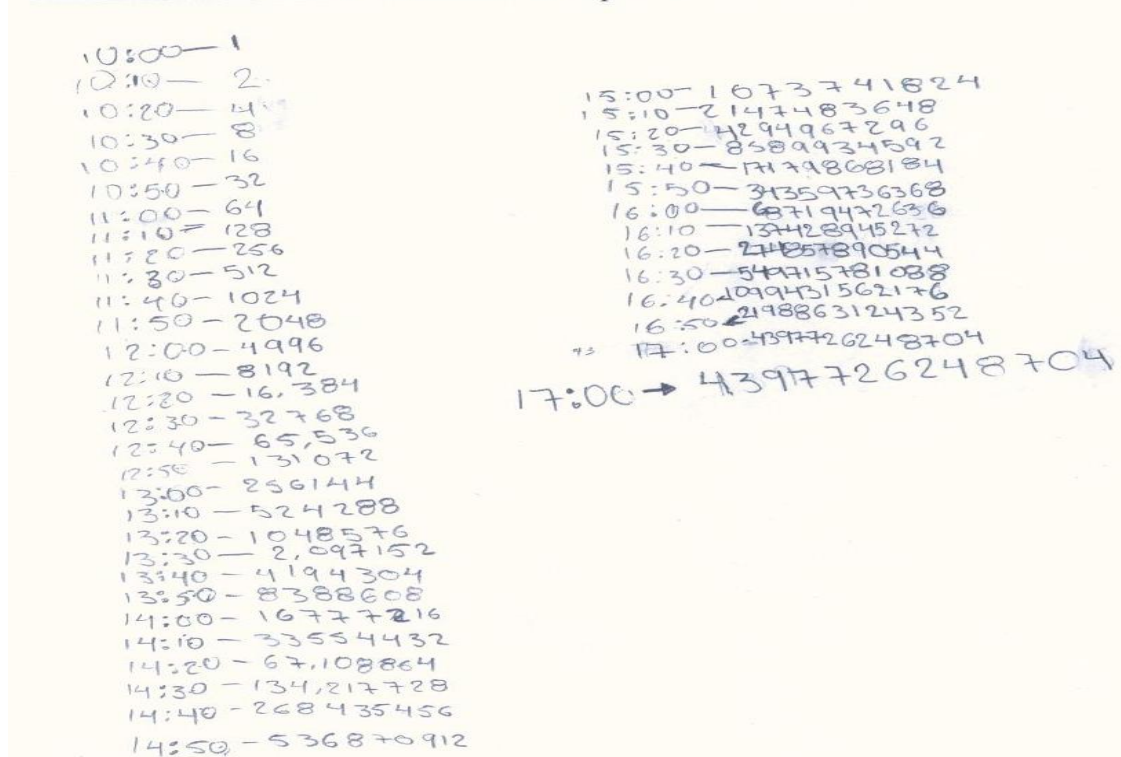 10:00— 1
10:10— 2
10:20— 4
10:30— 8
10:40— 16
10:50— 32
11:00— 64
11:10= 128
11:20— 256
11:30— 512
11:40— 1024
11:50— 2048
12:00— 4996
12:10— 8192
12:20— 16.384
12:30— 32768
12:40— 65,536
12:50— 131072
13:00- 256144
13:10— 524288
13:20- 1048576
13:30— 2,097152
13:40- 4194304
13:50- 8388608
14:00- 16777216
14:10- 33554432
14:20- 67,108864
14:30- 134,217728
14:40- 268435456
14:50- 536870912
15:00- 1673741824
15:10-2147483648
15:20- 4294967296
15:30- 8589934592
15:40— 17179868184
15:50— 34359736368
16:00— 68719472636
16:10— 137428945272
16:20- 274857890544
16:30- 549715781088
16:40-1099431562176
16:50 2198863124352
17:00-4397726248704
17:00→ 4397726248704